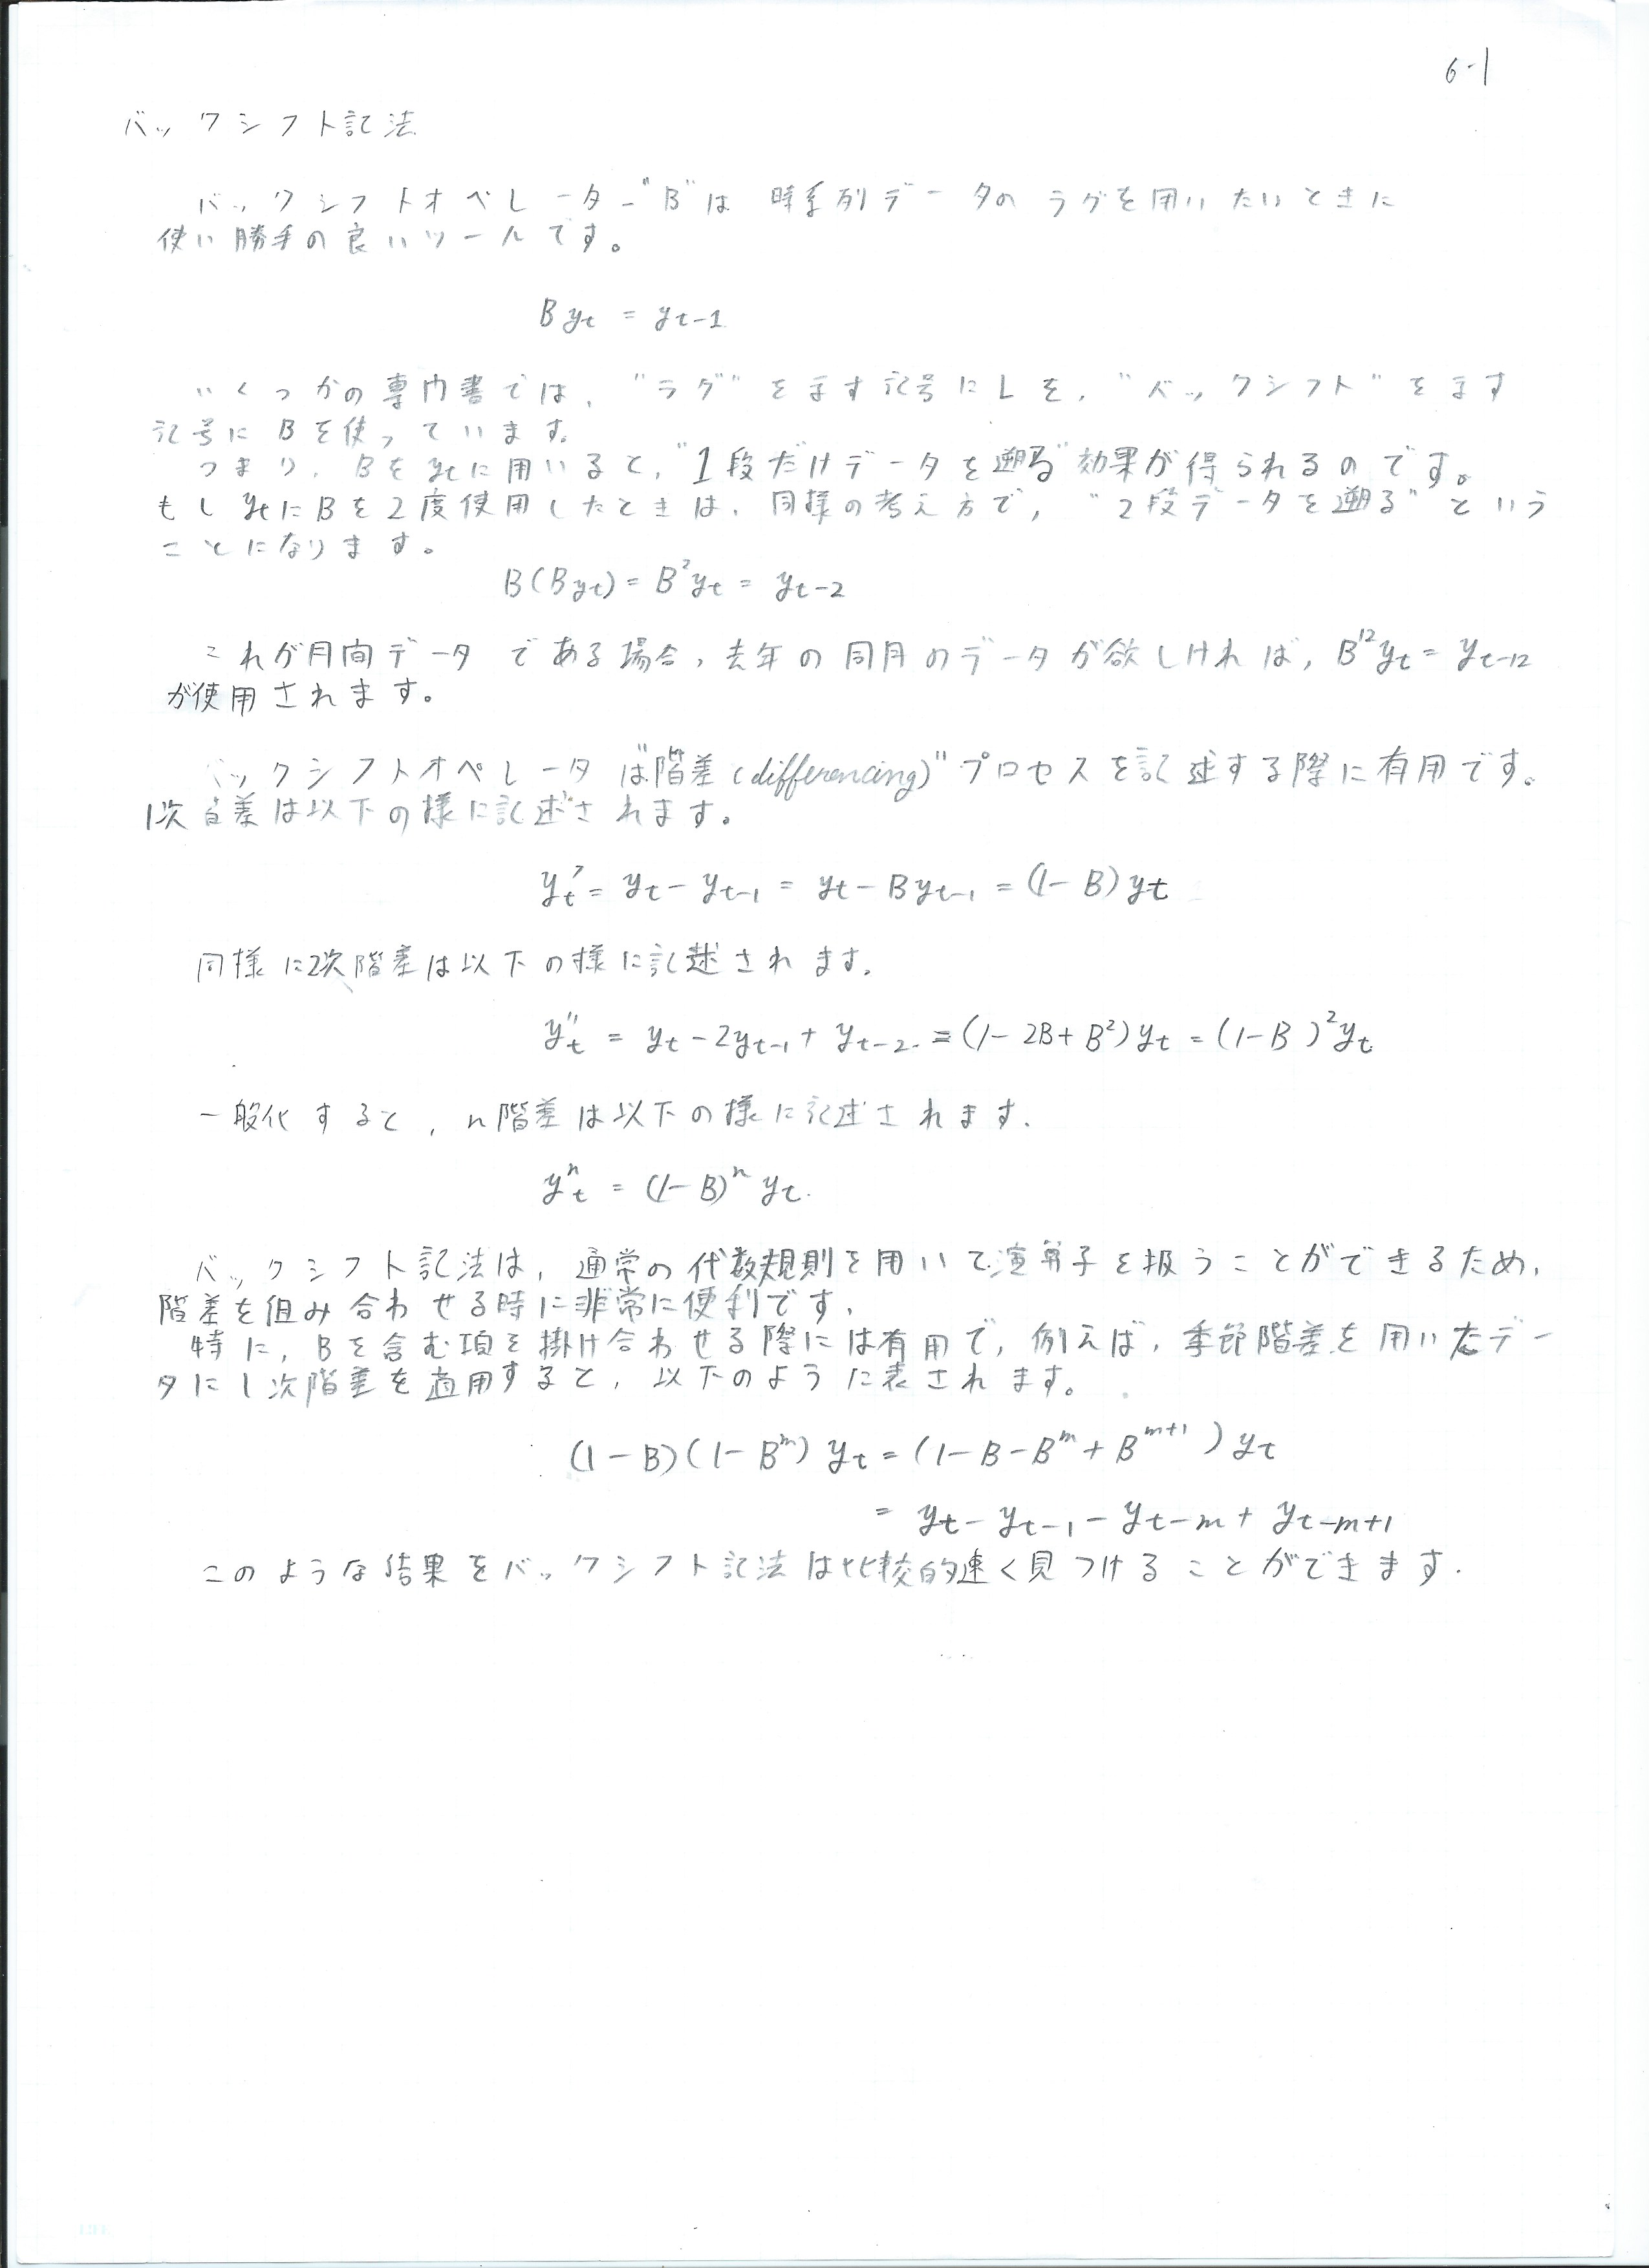 6-1
バックシフト記法
バックシフトオペレーター"B"は 時系列データの ラグを用いたいときに
使い勝手の良いツールです。
Byt = yt-1
いくつかの専門書では, "ラグ" をます記号にLを, "バックシフト" をます
記号に Bを使っています。
つまり, Bをytに用いると, "1段だけデータを遡る"効果が得られるのです。
もしytにBを2度使用したときは, 同様の考え方で, "2段データを遡る" という
ことになります。
B(Byt) = B²yt = yt-2
これが月間データ である場合, 去年の同月のデータが欲しければ, B¹²yt = yt-12
が使用されます。
バックシフトオペレータ は"階差(differencing)"プロセスを記述する際に有用です。
1次 差は以下の様に記述されます。
y't = yt - yt-1 = yt - Byt-1 = (1-B)yt
同様に2次階差は以下の様に記述されます.
y''t = yt - 2yt-1 + yt-2 = (1-2B+B²)yt = (1-B)²yt
一般化すると, n階差は以下の様に記述されます.
yⁿt = (1-B)ⁿ yt.
バックシフト記法は, 通常の代数規則を用いて演算子を扱うことができるため,
階差を組み合わせる時に非常に便利です,
特に, Bを含む項を掛け合わせる際には有用で, 例えば, 季節階差を用いたデー
タに1次階差を適用すると, 以下のように表されます。
(1-B)(1-Bᵐ) yt = (1-B-Bᵐ+Bᵐ⁺¹) yt
= yt - yt-1 - yt-m + yt-m+1
このような結果をバックシフト記法は比較的速く見つけることができます.